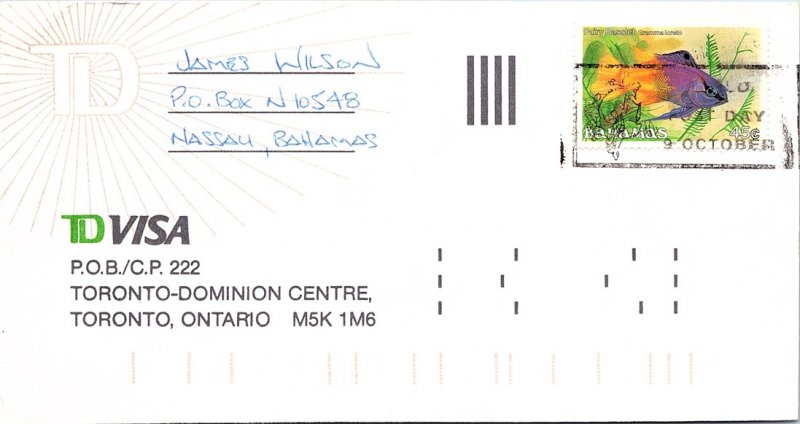 TD
JAMES WILSON
P.O. BOX N10548
NASSAU, BAHAMAS
Fairy Basslet Gramma loreto
BAHAMAS 45c
DAY
9 OCTOBER
TD VISA
P.O.B./C.P. 222
TORONTO-DOMINION CENTRE,
TORONTO, ONTARIO M5K 1M6